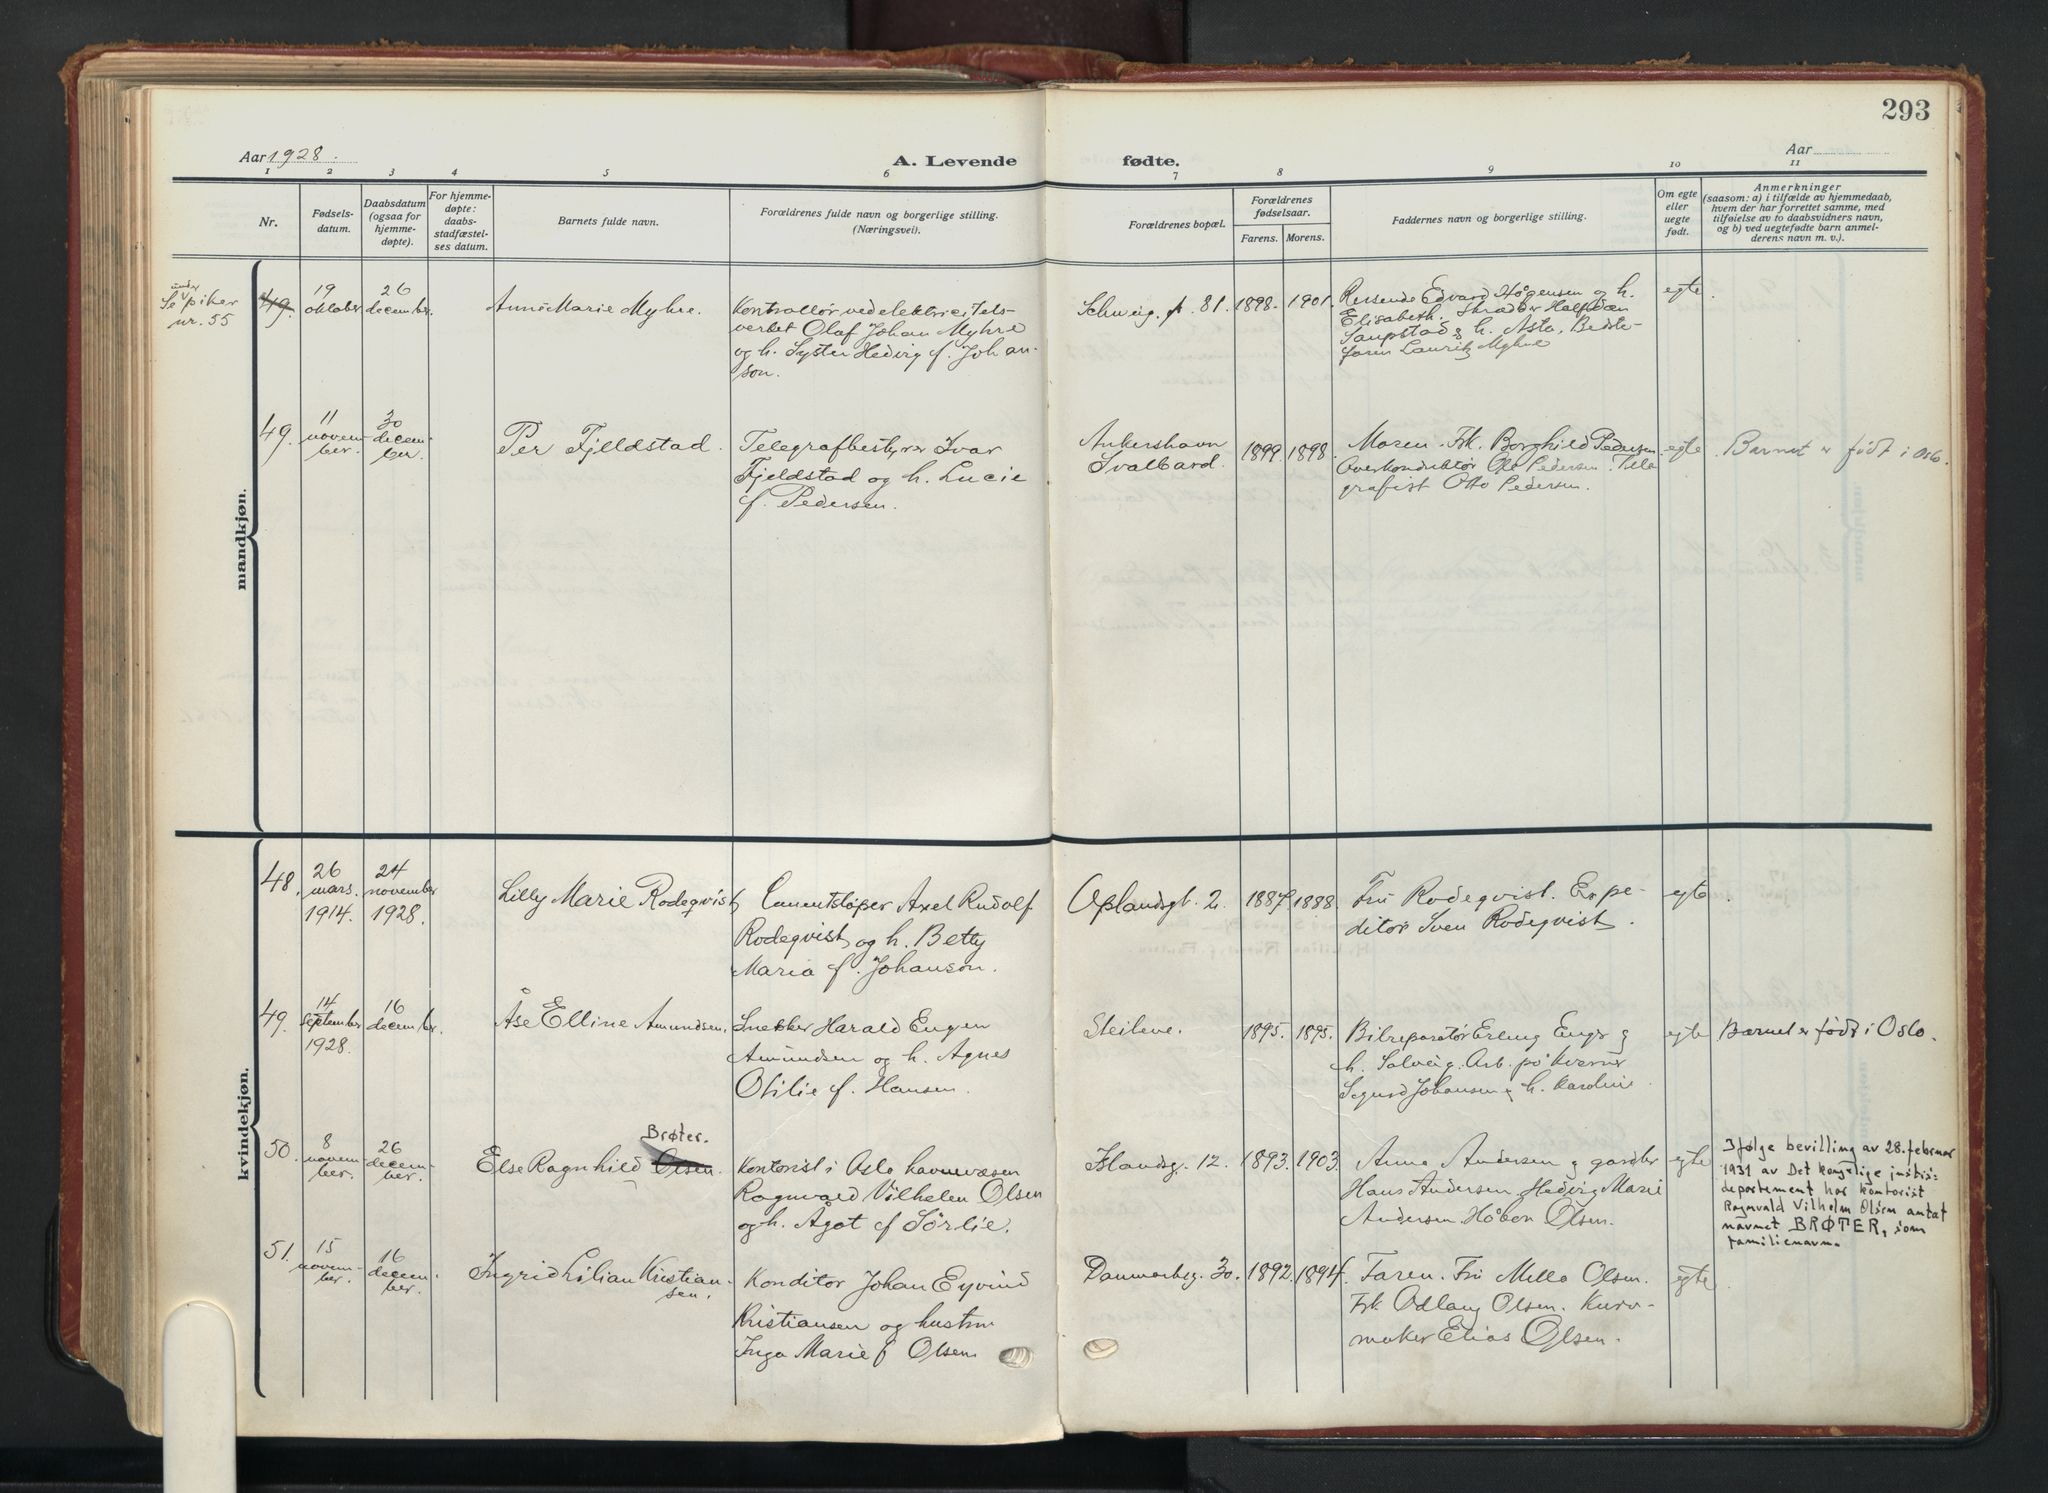 293
Aar 1928.
A. Levende
fødte.
Aar
1 2 3 4 5 6 7 8 9 10 11
Nr.
Fødsels-
datum.
Daabsdatum
(ogsaa for
hjemme-
døpte).
For hjemme-
døpte:
daabs-
stadfæstel-
ses datum.
Barnets fulde navn.
Forældrenes fulde navn og borgerlige stilling.
(Næringsvei).
Forældrenes bopæl.
Forældrenes
fødselsaar.
Farens. Morens.
Faddernes navn og borgerlige stilling.
Om egte
eller
uegte
født.
Anmerkninger
(saasom: a) i tilfælde av hjemmedaab,
hvem der har forrettet samme, med
tilføielse av to daabsvidners navn,
og b) ved uegtefødte barn anmel-
derens navn m. v.).
mandkjøn.
Se under piker
nr. 55
49.
19
oktober
26
december.
Anne Marie Myhre.
Kontrollør ved elektricitets-
verket Olaf Johan Myhre
og h. Syster Hedvig f. Johan-
son.
Schweig. 81.
1898.
1901.
Reisende Edvard Høgensen og h.
Elisabeth. Skrædder Halfdan
Saupstad & h. Asta, Bedste-
faren Lauritz Myhre
egte
49.
11
novem-
ber
30
decem-
ber.
Per Fjeldstad.
Telegrafbestyrer Ivar
Fjeldstad og h. Lucie
f. Pedersen.
Ankershavn
Svalbard.
1899.
1898.
Moren. Frk. Borghild Pedersen
Overkonduktør Ole Pedersen. Tele
grafist Otto Pedersen.
egte
Barnet er født i Oslo.
kvindekjøn.
48.
26
mars.
1914.
24
november
1928.
Lilly Marie Rodeqvist
Cementstøper Axel Rudolf
Rodeqvist og h. Betty
Maria f. Johanson.
Oplandsgt. 2.
1887
1888.
Fru Rodeqvist. Expe-
ditør Sven Rodeqvist.
egte
49.
14
september
1928.
16
december.
Åse Elline Amundsen.
Snekker Harald Eugen
Amundsen og h. Agnes
Otilie f. Hansen.
Steilene.
1895.
1895.
Bilreparatør Erling Engr &
h. Solveig. Arb. på Kværner
Sigurd Johansen & h. Karoline
egte
Barnet er født i Oslo.
50.
8
novem-
ber
26
decem-
ber.
Brøter.
Else Ragnhild Olsen.
Kontorist i Oslo havnevæsen
Ragnvald Vilhelm Olsen
og h. Ågot f. Sørlie.
Islandsg. 12.
1893.
1903.
Anna Andersen & gardbr
Hans Andersen, Hedvig Marie
Andersen Håkon Olsen.
egte
Ifølge bevilling av 28. februar
1931 av Det kongelige justis-
departement har kontorist
Ragnvald Vilhelm Olsen antat
navnet BRØTER, som
familienavn.
51.
15
novem-
ber.
16
decem-
ber.
Ingrid Lilian Kristian-
sen.
Konditor Johan Eyvind
Kristiansen og hustru
Inga Marie f Olsen
Danmarksg. 30.
1892.
1894.
Faren. Fru Milla Olsen.
Frk Odlaug Olsen. Kurv-
maker Elias Olsen.
egte